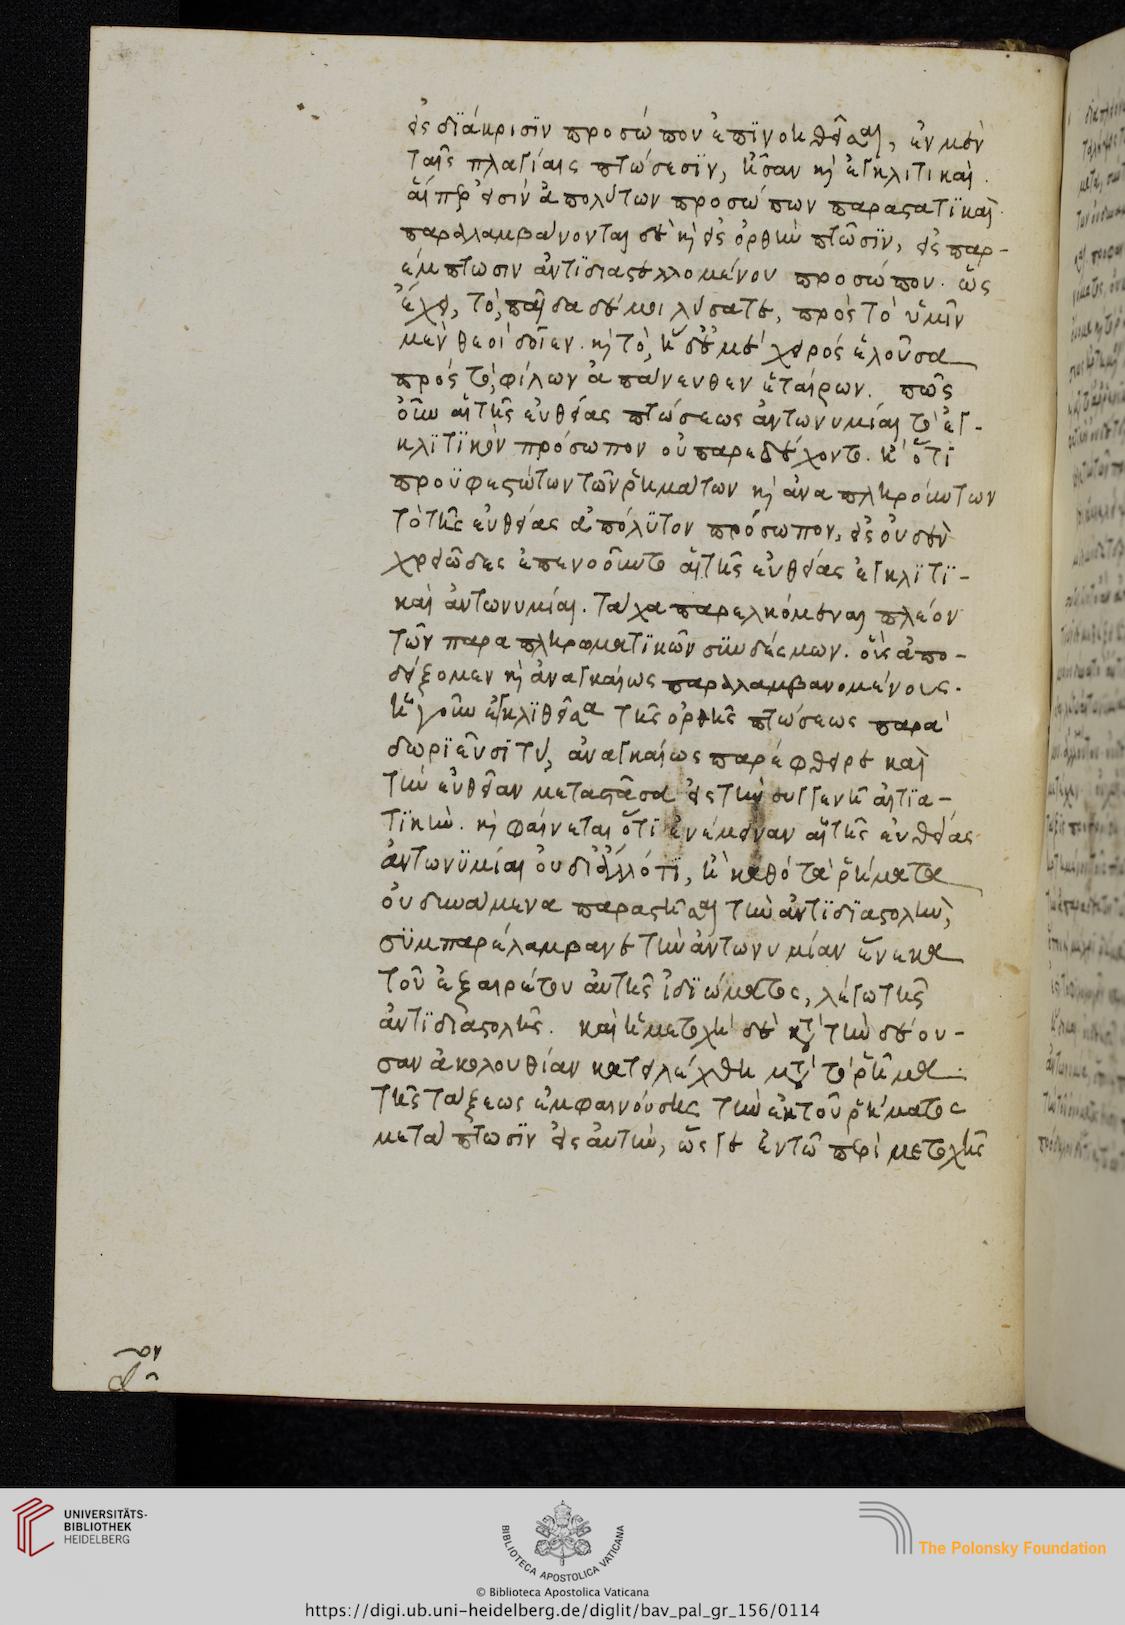 εἰς διάκρισιν προσώπου ἐπινοηθεῖσαι, ἐν μὲν
ταῖς πλαγίαις πτώσεσιν, ἦσαν καὶ ἐγκλιτικαὶ.
αἵπερ εἰσὶν ἀπολύτων προσώπων παραστατικαὶ.
παραλαμβάνονται δὲ καὶ εἰς ὀρθὴν πτῶσιν, εἰς παρ-
έμπτωσιν ἀντιδιαστελλομένου προσώπου. ὡς
ἔχει, τὸ, παῖδα δέ μοι λύσατε, πρὸς τὸ ὑμῖν
μὲν θεοὶ δοῖεν. καὶ τὸ, ἢ δέ με χειρὸς ἑλοῦσα
πρὸς τὸ, φίλων ἀπάνευθεν ἑταίρων. πῶς
οὖν αἱ τῆς εὐθείας πτώσεως ἀντωνυμίαι τὸ ἐγ-
κλιτικὸν πρόσωπον οὐ παρεδέχοντο. ἢ ὅτι
προϋφεστώτων τῶν ῥημάτων καὶ ἀναπληρούντων
τὸ τῆς εὐθείας ἀπόλυτον πρόσωπον, εἰς οὐδὲν
χρειῶδες ἐπενοοῦντο αἱ τῆς εὐθείας ἐγκλιτι-
καὶ ἀντωνυμίαι. τάχα παρελκόμεναι πλέον
τῶν παραπληρωματικῶν συνδέσμων. οὓς ἀπο-
δείξομεν καὶ ἀναγκαίως παραλαμβανομένους.
ἡ γοῦν ἐγκλιθεῖσα τῆς ὀρθῆς πτώσεως παρὰ
δωριεῦσι τύ, ἀναγκαίως παρέφθειρε καὶ
τὴν εὐθεῖαν μεταστᾶσα εἰς τὴν συγγενῆ αἰτια-
τικὴν. καὶ φαίνεται ὅτι ἐνέμειναν αἱ τῆς εὐθείας
ἀντωνυμίαι οὐ δι' ἄλλό τι, ἢ καθὸ τὰ ῥήματα
οὐ δυνάμενα παραστῆσαι τὴν ἀντιδιαστολὴν,
συμπαρέλαμβανε τὴν ἀντωνυμίαν ἕνεκα
τοῦ ἐξαιρέτου αὐτῆς ἰδιώματος, λέγω τῆς
ἀντιδιαστολῆς. καὶ ἡ μετοχὴ δὲ κατὰ τὴν δέου-
σαν ἀκολουθίαν κατελέχθη μετὰ τὸ ῥῆμα.
τῆς τάξεως ἐμφαινούσης τὴν ἐκ τοῦ ῥήματος
μετάπτωσιν εἰς αὐτὴν, ὥς γε ἐν τῷ περὶ μετοχῆς
UNIVERSITÄTS-
BIBLIOTHEK
HEIDELBERG
BIBLIOTECA APOSTOLICA VATICANA
The Polonsky Foundation
© Biblioteca Apostolica Vaticana
https://digi.ub.uni-heidelberg.de/diglit/bav_pal_gr_156/0114